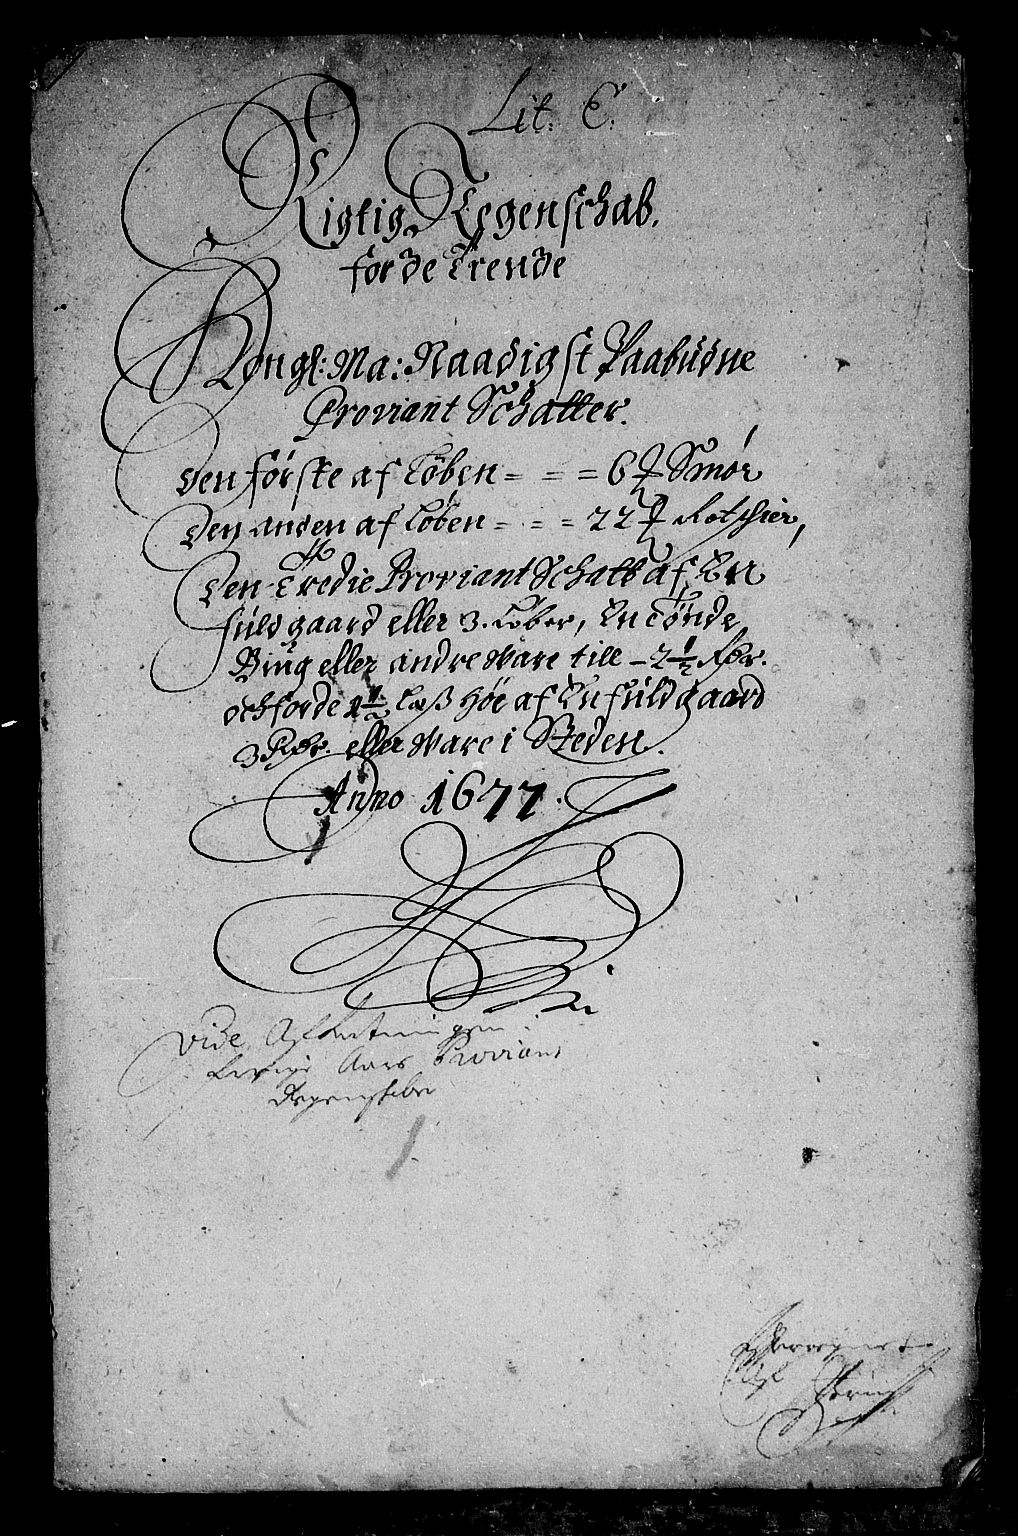 Lit: E:
Rigtig Regenschab.
for de Trende
Kongl: Ma: Naadigst Paabudne
Proviant Schatter.
Den første af Løben = = = 6 ℔ Smør
Den anden af Løben = = = 22 ℔ Rotschier,
Den Tredie Proviant Schatt af En
fuld gaard eller 3. Løber, En Tønde
Biug eller andre Ware till - 2 1/2 Rdr.
och forde 1 1/2 Læß Høe af En fuld gaard
3 Rdr. eller Ware i Steden.
Anno 1677.
vide Afskrtningen
forrige Aars Proviant
Regenskaber